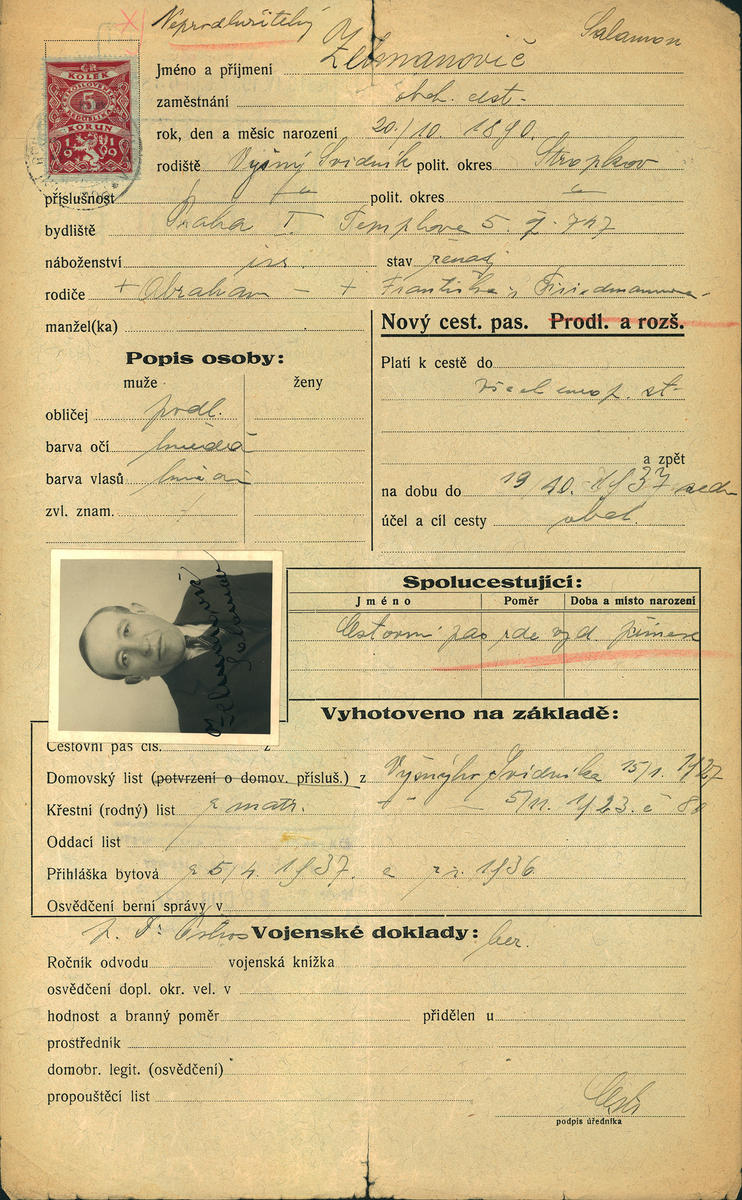 Neprodlužitelný
Salamon
ČR
KOLEK
5
KORUN
19 19
Jméno a příjmení Zelmanovič
zaměstnání obch. cest.
rok, den a měsíc narození 20./10. 1890.
rodiště Vyšný Svidník polit. okres Stropkov
příslušnost polit. okres
bydliště Praha I. Templova 5. č. 747
náboženství isr. stav ženatý
rodiče + Abraham - + Františka r. Friedmannova
manžel(ka)
Nový cest. pas. Prodl. a rozš.
Popis osoby:
muže ženy
Platí k cestě do
všech evrop. st.
obličej podl.
barva očí hnědá
a zpět
barva vlasů
na dobu do 19/10. 1937
zvl. znam.
účel a cíl cesty obch.
Zelmanovič Salamon
Spolucestující:
Jméno Poměr Doba a místo narození
Cestovní pas zde vyd.
Vyhotoveno na základě:
Cestovní pas čís. z
Domovský list (potvrzení o domov. přísluš.) z Vyšnýho Svidníka 15/1. 1927
Křestní (rodný) list z matr. 5/11. 1923. č 80
Oddací list
Přihláška bytová z 5/4. 1937. a 1936
Osvědčení berní správy v
Vojenské doklady:
Ročník odvodu vojenská knížka
osvědčení dopl. okr. vel. v
hodnost a branný poměr přidělen u
prostředník
domobr. legit. (osvědčení)
propouštěcí list
podpis úředníka